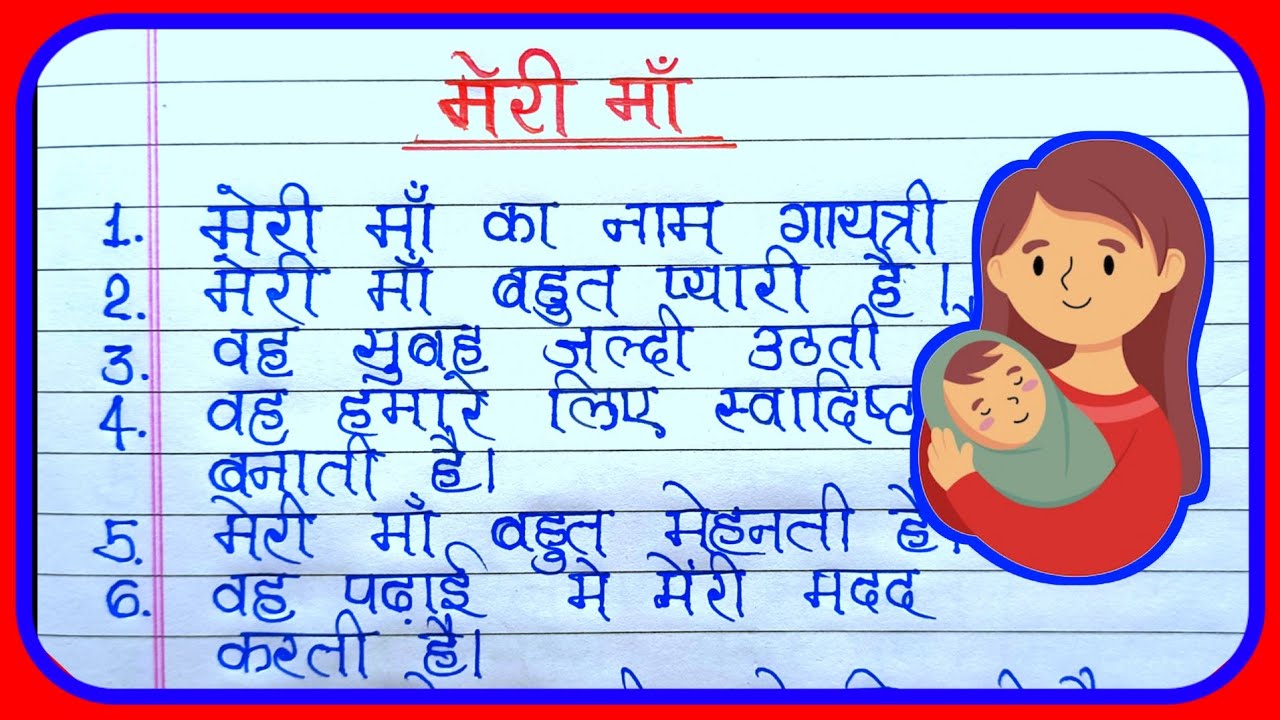 मेरी माँ
1. मेरी माँ का नाम गायत्री
2. मेरी माँ बहुत प्यारी है।
3. वह सुबह जल्दी उठती
4. वह हमारे लिए स्वादिष्ट
बनाती है।
5. मेरी माँ बहुत मेहनती है।
6. वह पढ़ाई मे मेंरी मदद
करती है।